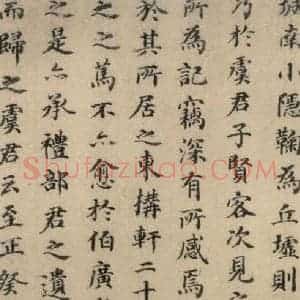 城南小隱鞠為丘墟則
乃於虞君子賢客次見之
所為記竊深有所感焉
於其所居之東搆軒二十
之之蔿不亦愈於伯廣
之是亦承禮部君之遺
而歸之虞君云至正癸
Shufazidian.com